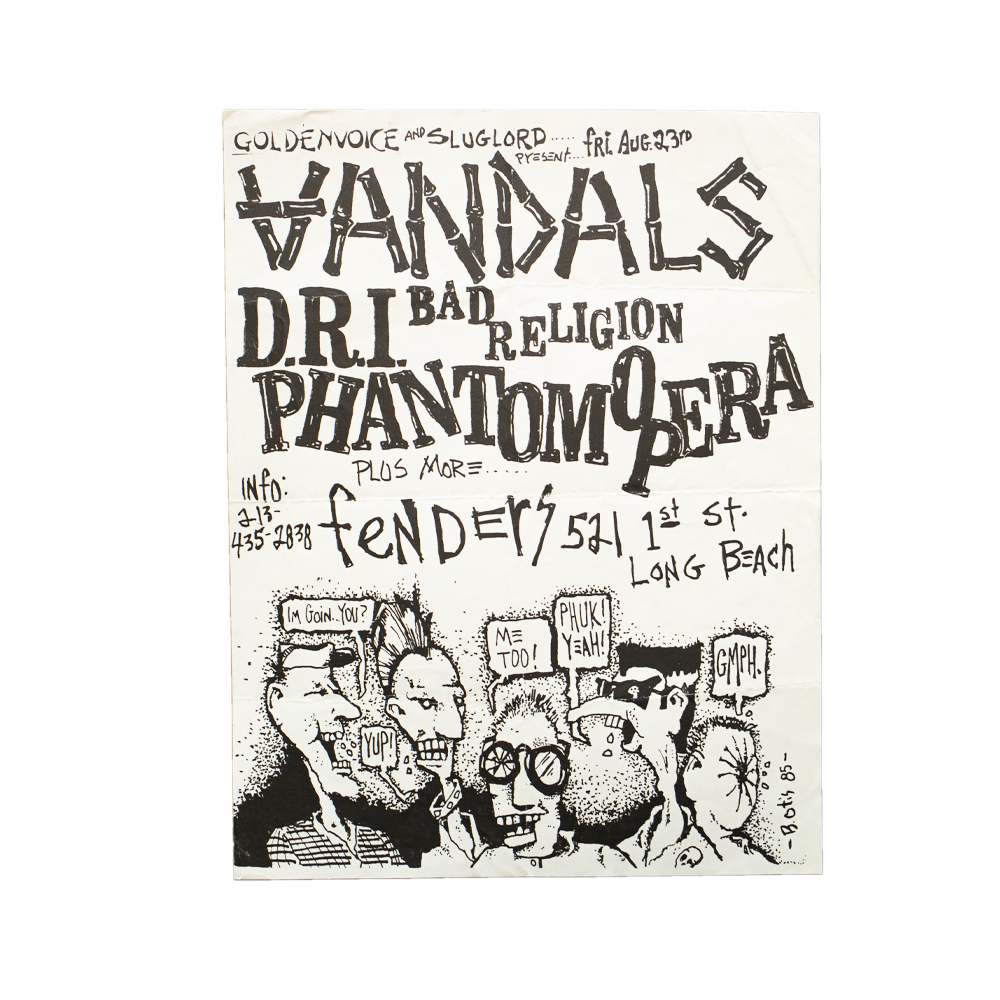 GOLDENVOICE AND SLUGLORD ..... fRI. AUG. 23RD
PRESENT....
VANDALS
D.R.I. BAD RELIGION
PHANTOM OPERA
PLUS MORE......
INfO:
213-
435-2838
fENDERS 521 1st St.
LONG BEACh
I'M GOIN..YOU?
YUP!
ME TOO!
PHUK! YEAH!
GMPH.
-B.Otis 85-